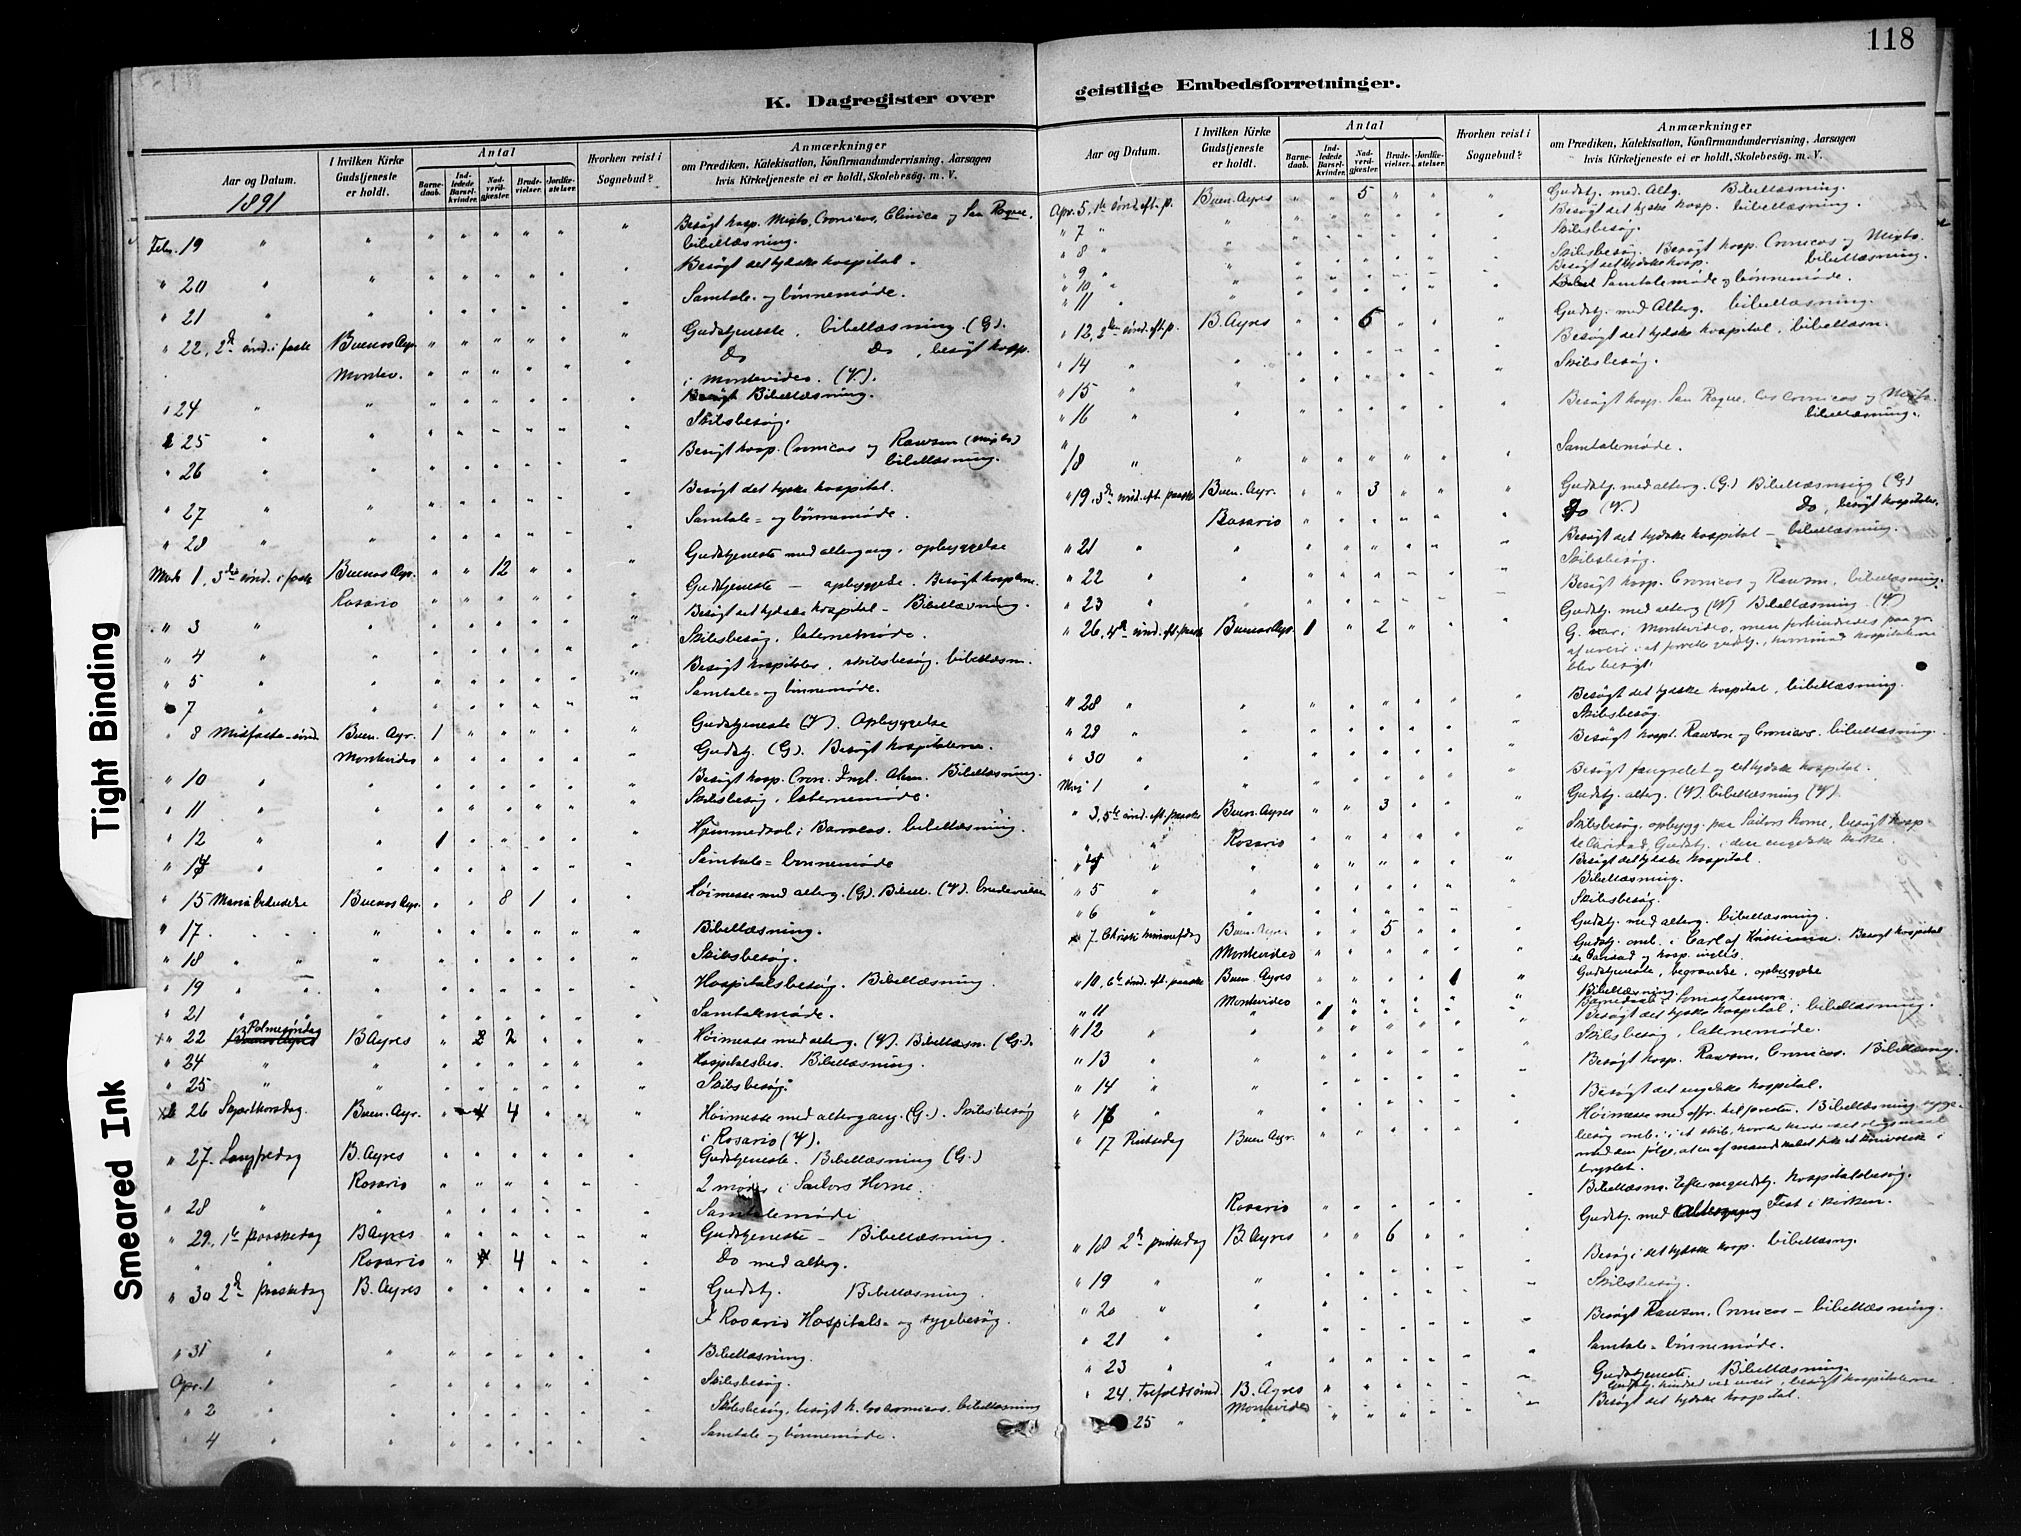 118
K. Dagregister over
geistlige Embedsforretninger.
Aar og Datum.
I hvilken Kirke Gudstjeneste er holdt.
Antal
Barnedaab.
Indledede Barselkvinder.
Nadverdgjester.
Brudevielser.
Jordfæstelser.
Hvorhen reist i Sognebud?
Anmærkninger
om Prædiken, Katekisation, Konfirmandundervisning, Aarsagen
hvis Kirketjeneste ei er holdt, Skolebesøg. m. V.
1891
Febr. 19 " " Besøgt hosp. Mixto, Cronicos, Clinica og San Roque,
bibellæsning.
" 20 " " Besøgt det tydske hospital.
" 21 " " Samtale- og bønnemøde.
" 22, 2d sønd. i faste Buenos Ayr. Gudstjeneste. bibellæsning. (G).
Montev. Do Do, besøgt hosp.
i Montevideo. (V).
" 24 " " Bibellæsning.
" 25 " " Skibsbesøg.
" 26 " " Besøgt hosp. Cronicos og Rawson (mixto)
bibellæsning.
" 27 " " Besøgt det tydske hospital.
" 28 " " Samtale- og bønnemøde.
Marts 1, 3die sønd. i faste Buenos Ayr. " " 12 " " Gudstjeneste med altergang, opbyggelse
Rosario Gudstjeneste – opbyggelse. Besøgt hospitalerne.
" 3 " " Besøgt det tydske hospital – Bibellæsning.
" 4 " " Skibsbesøg, laternemøde.
" 5 " " Besøgt hospitaler, skibsbesøg. bibellæsn.
" 7 " " Samtale- og bønnemøde.
" 8 Midfaste-sønd. Buen. Ayr. 1 Gudstjeneste (V). Opbyggelse
Montevideo Gudstj. (G). Besøgt hospitalerne.
" 10 " " Besøgt hosp. Cron. Ingl. Alem. Bibellæsning.
" 11 " " Skibsbesøg, laternemøde.
" 12 " " 1 Hjemmedaab i Barracas. bibellæsning.
" 14 " Samtale= bønnemøde
" 15 Mariæ bebudelse Buenos Ayr. " " 8 1 Høimesse med alterg. (G). Bibell. (V). brudevielse
" 17. " " Bibellæsning.
" 18 " " Skibsbesøg.
" 19 " " Hospitalsbesøg. Bibellæsning.
" 21 " " Samtalemøde.
" 22 Palmesøndag B Ayres " 2 2 Høimesse med alterg. (V). Bibellæsn. (G).
" 24 " " Hospitalsbes. Bibellæsning.
" 25 " " Skibsbesøg.
" 26 Skjærthorsdag. Buen. Ayr. " 4 4 Høimesse med altergang. (G). Skibsbesøg
i Rosario (V).
" 27. Langfredag B. Ayres Gudstjeneste. Bibellæsning (G.)
Rosario 2 møder i Sailors Home.
" 28 " " Samtalemøde
" 29, 1te Paaskedag B Ayres Gudstjeneste – Bibellæsning.
Rosario " 4 4 Do med alterg.
" 30 2d Paaskedag B. Ayres Gudstj. Bibellæsning.
I Rosario Hospitals- og sygebesøg.
" 31 " " Bibellæsning.
Apr. 1 " " Skibsbesøg.
" 2 " " Skibsbesøg, besøgt h. los cronicos. bibellæsning
" 4 " " Samtale og bønnemøde.
Aar og Datum.
I hvilken Kirke Gudstjeneste er holdt.
Antal
Barnedaab.
Indledede Barselkvinder.
Nadverdgjester.
Brudevielser.
Jordfæstelser.
Hvorhen reist i Sognebud?
Anmærkninger
om Prædiken, Katekisation, Konfirmandundervisning, Aarsagen
hvis Kirketjeneste ei er holdt, Skolebesøg. m. V.
Apr. 5, 1te sønd. eft. p. Buen. Ayres " " 5 Gudstj. med Altg. Bibellæsning.
" 7 " Besøgt det tydske hosp. bibellæsning.
" 8 " Skibsbesøg.
" 9 " Skibsbesøg. Besøgt hosp. Cronicos og Mixto.
" 10 " Besøgt det tydske hosp. bibellæsning.
" 11 " Samtalemøde og bønnemøde.
" 12, 2den sønd. eft. p. B. Ayres " " 5 Gudstj. med Alterg. bibellæsning.
" 14 " Besøgt det tydske hospital, bibellæsn.
" 15 " Skibsbesøg.
" 16 " Besøgt hosp. San Roque, los cronicos og Mixto.
bibellæsning.
" 18 " Samtalemøde.
" 19, 3die sønd. eft. paaske Buen. Ayr. " " 3 Gudstj. med alterg. (G.) Bibellæsning (G)
Rosario Do (V.) Do, besøgt hospitaler.
" 21 " Besøgt det tydske hospital – bibellæsning.
" 22 " Skibsbesøg.
" 23 " Besøgt hosp. Cronicos og Rawson, bibellæsning.
" 26, 4d sønd. eft. paaske Buenos Ayr. 1 " 2 Gudstj. med alterg (V) Bibellæsning (V)
G. var i Montevideo, men forhindredes paa gr.
af uveir i at forrette gudstj., hvorimod hospitalerne
blev besøgt.
" 28 " Besøgt det tydske hospital, bibellæsning.
" 29 " Skibsbesøg.
" 30 " Besøgt hospt. Rawson og Cronicos. bibellæsning.
Mai 1 " Besøgt fængselet og det tydske hospital.
" 3, 5te sønd. eft. paaske Buen. Ayres " " 3 Gudstj. alterg. (V). bibellæsning (V).
Rosario Skibsbesøg, opbygg. paa Sailors Home, besøgt hosp.
de Caridad, Gudstj. i den engelske kirke.
" 4 " Besøgt det tydske hospital.
" 5 " Bibellæsning.
" 6 " Skibsbesøg.
" 7 Christi himmelf.dag Buen. Ayres " " 5 Gudstj. med alterg. bibellæsning.
Montevideo Gudstj. omb. i Carl af Kristiania. Besøgt hospital
de Caridad og hosp. inglés.
" 10, 6te sønd. eft. paaske Buen. Ayres 1 Gudstjeneste, begravelse, opbyggelse
Montevideo Bibellæsning.
" 11 " 1 Barnedaab i Lomas Zamora.
" 12 " Besøgt det tydske hospital, bibellæsning.
" 13 " Skibsbesøg, laternemøde.
" 14 " Besøgt hosp. Rawson, Cronicos. Bibellæsning.
" 16 " Besøgt det engelske hospital.
" 17 Pintsedag Buen Ayr. Høimesse med offr. til præsten. Bibellæsning syge-
besøg omb. i et skib,
Bibellæsn. Eftermgudstj. hospitalsbesøg.
Rosario Gudstj. med Altergang Fest i kirken.
" 18 2d pintsedag B. Ayres " " 6
" 19 " Besøg i det tydske hosp. bibellæsng.
" 20 " Skibsbesøg.
" 21 " Besøgt Rawson, Cronicos – bibellæsning.
" 23 " Samtale- bønnemøde.
" 24. Trefoldsønd. B. Ayres Gudstjeneste. Bibellæsning.
Montevideo Gudstj. hindret ved uveir, besøgt hospitalerne
" 25 " Besøgt det tydske hospital.
Tight Binding
Smeared Ink